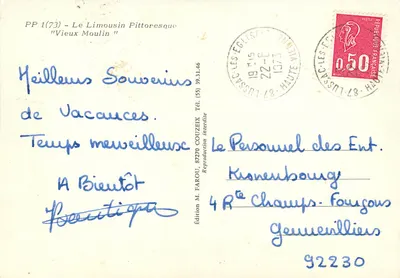 PP 1(73) - Le Limousin Pittoresque
"Vieux Moulin"
Meilleurs Souvenirs
de Vacances.
Temps merveilleux
A Bientôt
Édition M. PAROU, 87270 COUZEIX Tél. (55) 39.31.46
Reproduction interdite
LUSSAC-LES-EGLISES
87 HAUTE
19H15
22-8
1973
0,50
Le Personnel des Ent.
Kronenbourg
4 Rte Champs-Fourgons
Gennevilliers
92230